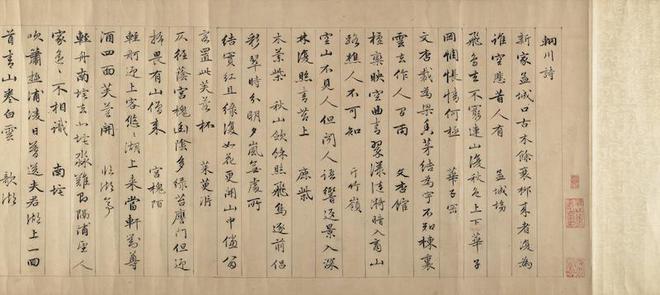 輞川詩
新家孟城口古木餘衰柳来者復為
誰空悲昔人有 孟城坳
飛鳥去不窮連山復秋色上下華子
岡惆悵情何極 華子岡
文杏裁為梁香茅結為宇不知棟裏
雲去作人間雨 文杏館
檀欒暎空曲青翠漾漣漪暗入商山
路樵人不可知 斤竹嶺
空山不見人但聞人語響返景入深
林復照青苔上 鹿柴
木蘭柴 秋山斂餘照飛鳥逐前侶
彩翠時分明夕嵐無處所
結實紅且綠復如花更開山中儻留
客置此芙蓉杯 茱萸沜
仄徑蔭宮槐幽陰多綠苔應門但迎
掃畏有山僧来 宮槐陌
輕舸迎上客悠悠湖上来當軒對尊
酒四面芙蓉開 臨湖亭
輕舟南垞去北垞淼難即隔浦望人
家遙遙不相識 南垞
吹簫極浦凌日暮送夫君湖上一回
首青山卷白雲 欹湖